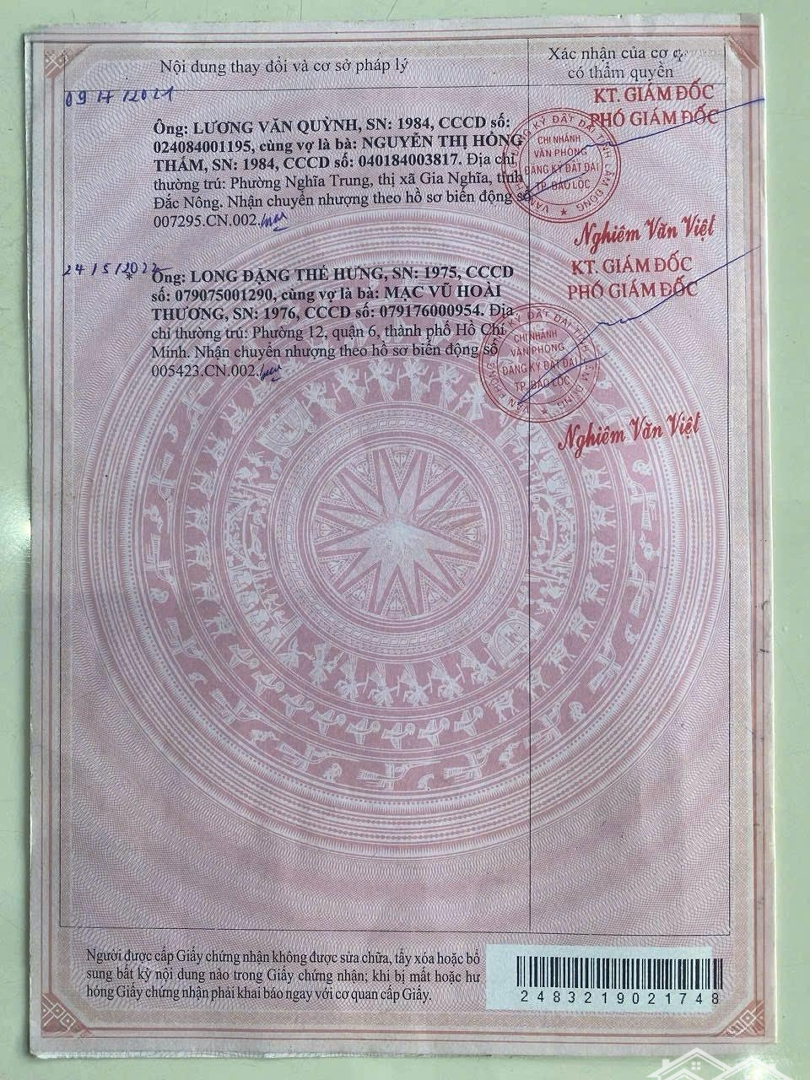 Nội dung thay đổi và cơ sở pháp lý
Xác nhận của cơ
có thẩm quyền
09/4/2021
Ông: LƯƠNG VĂN QUỲNH, SN: 1984, CCCD số:
024084001195, cùng vợ là bà: NGUYỄN THỊ HỒNG
THẮM, SN: 1984, CCCD số: 040184003817. Địa chỉ
thường trú: Phường Nghĩa Trung, thị xã Gia Nghĩa, tỉnh
Đắc Nông. Nhận chuyển nhượng theo hồ sơ biến động số
007295.CN.002.
KT. GIÁM ĐỐC
PHÓ GIÁM ĐỐC
CHI NHÁNH
VĂN PHÒNG
ĐĂNG KÝ ĐẤT ĐAI
TP. BẢO LỘC
Nghiêm Văn Việt
24/5/2022
Ông: LONG ĐẶNG THẾ HƯNG, SN: 1975, CCCD
số: 079075001290, cùng vợ là bà: MẠC VŨ HOÀI
THƯƠNG, SN: 1976, CCCD số: 079176000954. Địa
chỉ thường trú: Phường 12, quận 6, thành phố Hồ Chí
Minh. Nhận chuyển nhượng theo hồ sơ biến động số
005423.CN.002.
KT. GIÁM ĐỐC
PHÓ GIÁM ĐỐC
CHI NHÁNH
VĂN PHÒNG
ĐĂNG KÝ ĐẤT ĐAI
TP. BẢO LỘC
Nghiêm Văn Việt
Người được cấp Giấy chứng nhận không được sửa chữa, tẩy xóa hoặc bổ
sung bất kỳ nội dung nào trong Giấy chứng nhận; khi bị mất hoặc hư
hỏng Giấy chứng nhận phải khai báo ngay với cơ quan cấp Giấy.
2483219021748